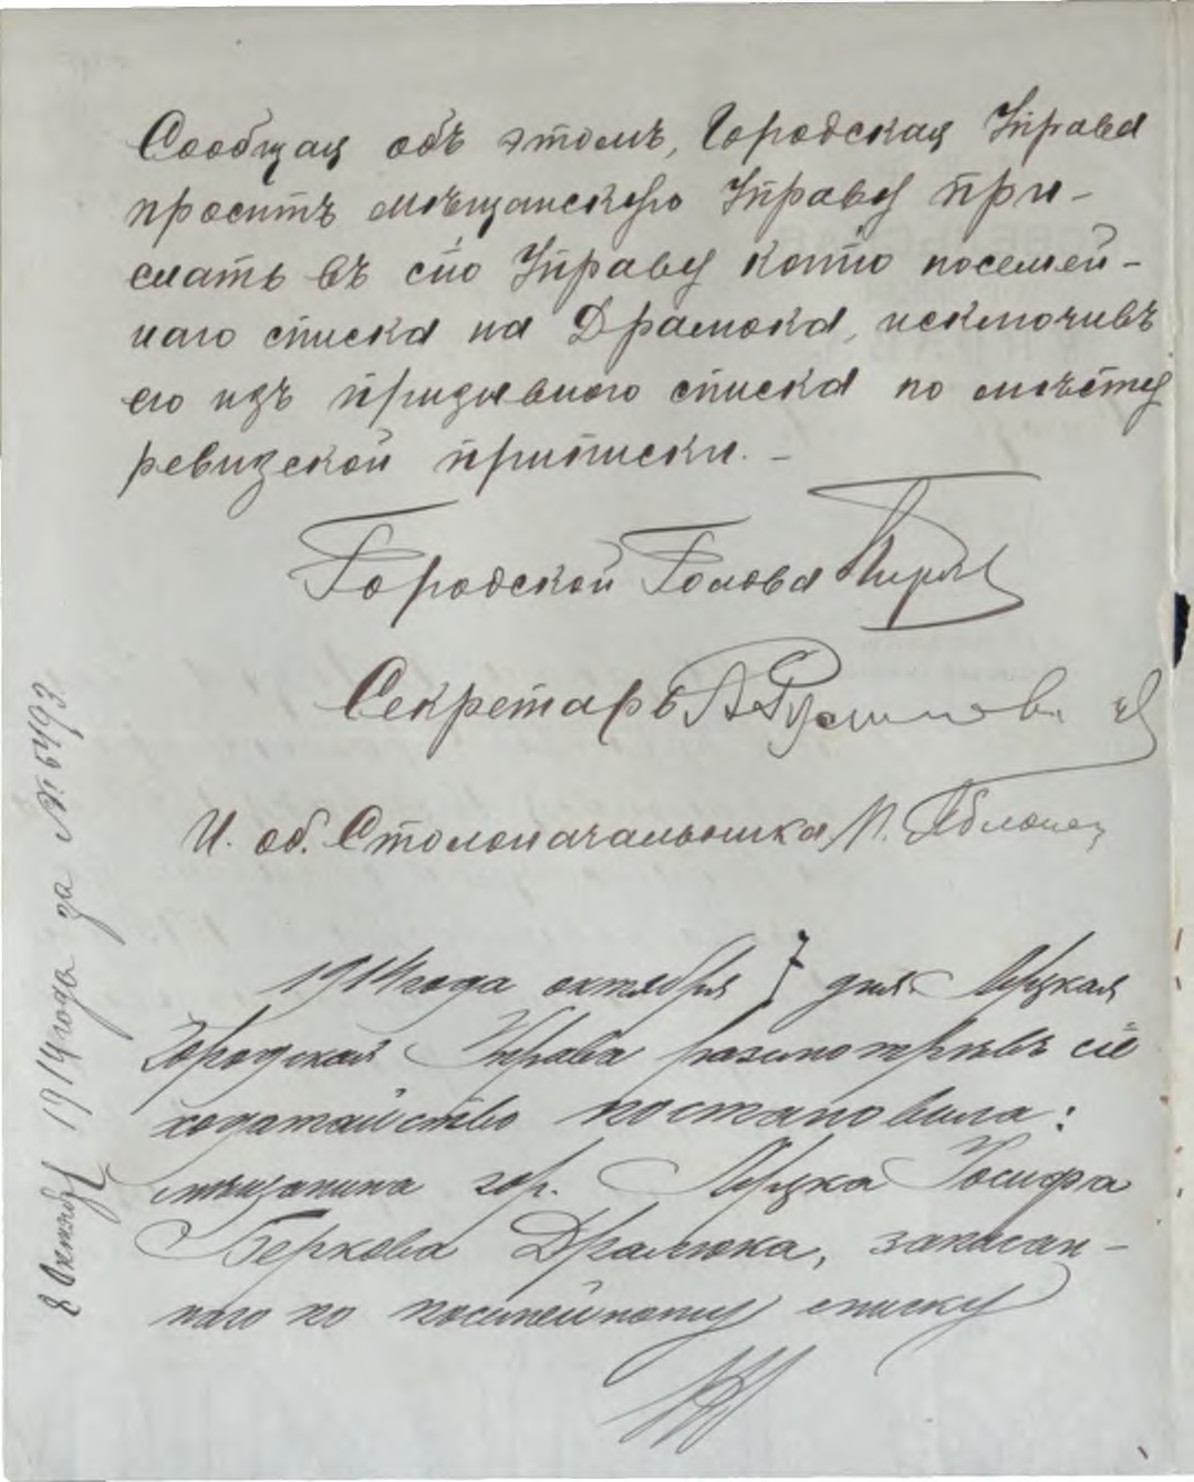 Сообщая объ этомъ, Городская Управа
проситъ мѣщанскую Управу при-
слать въ сію Управу копію посемей-
наго списка на Дралюка, исключивъ
его изъ призывного списка по мѣсту
ревизской приписки. –
Городской Голова
Секретарь А
И. об. Столоначальника М. Яблонец
1914 года октября 7 дня Луцкая
Городская Управа разсмотрѣвъ сіе
ходатайство постановила:
мѣщанина гор. Луцка Іосифа
Беркова Дралюка, записан-
наго по посемейному списку
8 Октября 1914 года за № 5493